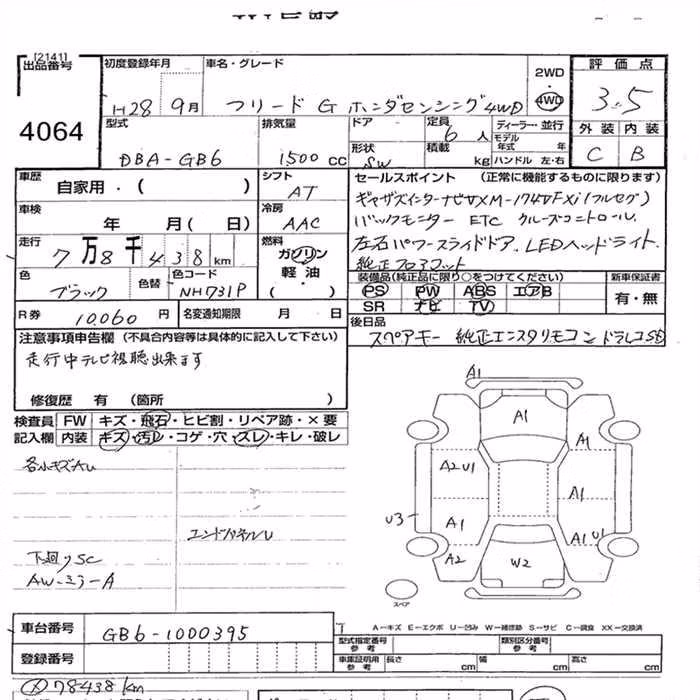 [2141]
出品番号
4064
初度登録年月
H28 9月
車名・グレード
フリード G ホンダセンシング 4WD
2WD
・
4WD
評価点
3.5
型式
DBA-GB6
排気量
1500 cc
ドア
形状
SW
定員
6 人
積載
kg
ディーラー・並行
モデル
年式 年
ハンドル 左・右
外装 内装
C B
車歴
自家用・( )
シフト
AT
セールスポイント (正常に機能するものに限ります)
ギャザズインターナビVXM-174VFXi(フルセグ)
バックモニター ETC クルーズコントロール
左右パワースライドドア LEDヘッドライト
純正フロアマット
車検
年 月( 日)
冷房
AAC
走行
7万8千438km
燃料
ガソリン
軽油・
( )
色
ブラック
色替
色コード
NH731P
装備品(純正品に限り○をつけてください)
PS PW ABS エアB
SR ナビ TV
新車保証書
有・無
R券 10,060 円
名変通知期限 月 日
後日品
スペアキー 純正エンスタリモコン ドラレコSD
注意事項申告欄 (不具合内容等は具体的に記入して下さい)
走行中テレビ視聴出来ます
修復歴 有 (箇所 )
検査員 FW キズ・飛石・ヒビ割・リペア跡・×要
記入欄 内装 キズ・汚レ・コゲ・穴・スレ・キレ・破レ
各小キズAU
エンドパネルU
下廻りSC
AW-ミラーA
A1
A1
A1
A2 U1
A1
U3
A1
A1 U1
A2
W2
スペア
A-キズ E-エクボ U-凹み W-補修跡 S-サビ C-腐食 XX-交換済
車台番号 GB6-1000395
登録番号
型式指定番号
参考
類別区分番号
参考
車庫証明用
参考
長さ cm 幅 cm 高さ cm
78438km